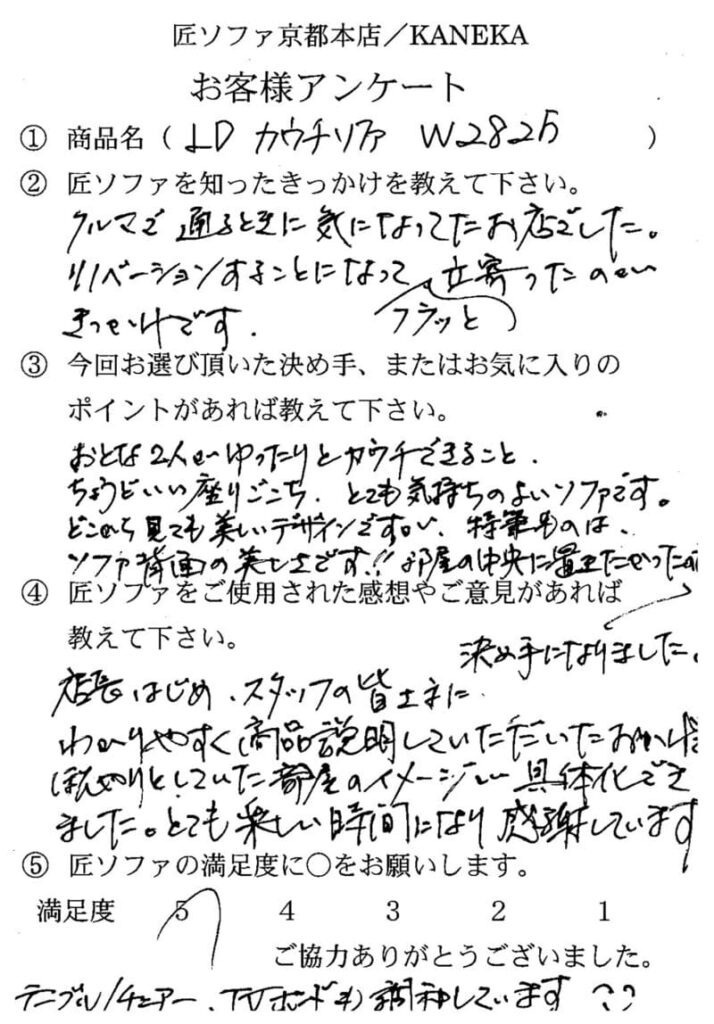 匠ソファ京都本店／KANEKA
お客様アンケート
① 商品名（ LD カウチソファ W2825 ）
② 匠ソファを知ったきっかけを教えて下さい。
クルマで通るときに気になってたお店でした。
リノベーションすることになって立寄ったのが
フラッと
きっかけです.
③ 今回お選び頂いた決め手、またはお気に入りの
ポイントがあれば教えて下さい。
おとな2人がゆったりとカウチできること.
ちょうどいい座りごこち. とても気持ちのよいソファです。
どこから見ても美しいデザインですが、特筆ものは、
ソファ背面の美しさです!! お部屋の中央に置きたかったので
④ 匠ソファをご使用された感想やご意見があれば
教えて下さい。
決め手になりました。
店長はじめ、スタッフの皆さまに
わかりやすく商品説明していただいたおかげで
ぼんやりとしていた部屋のイメージが具体化でき
ました。とても楽しい時間になり感謝しています
⑤ 匠ソファの満足度に〇をお願いします。
満足度 5 4 3 2 1
ご協力ありがとうございました。
テーブル/チェアー、TVボードも満足しています